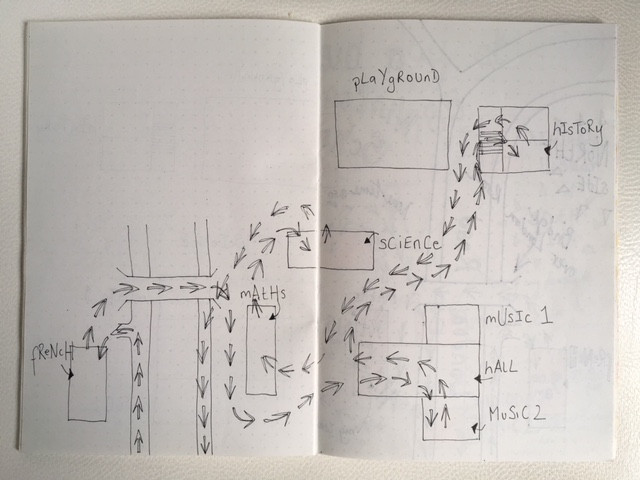 pLaYgRounD
hIsToRy
sCiEnCe
mAtHs
mUsIc 1
fReNcH
hALL
MuSiC 2